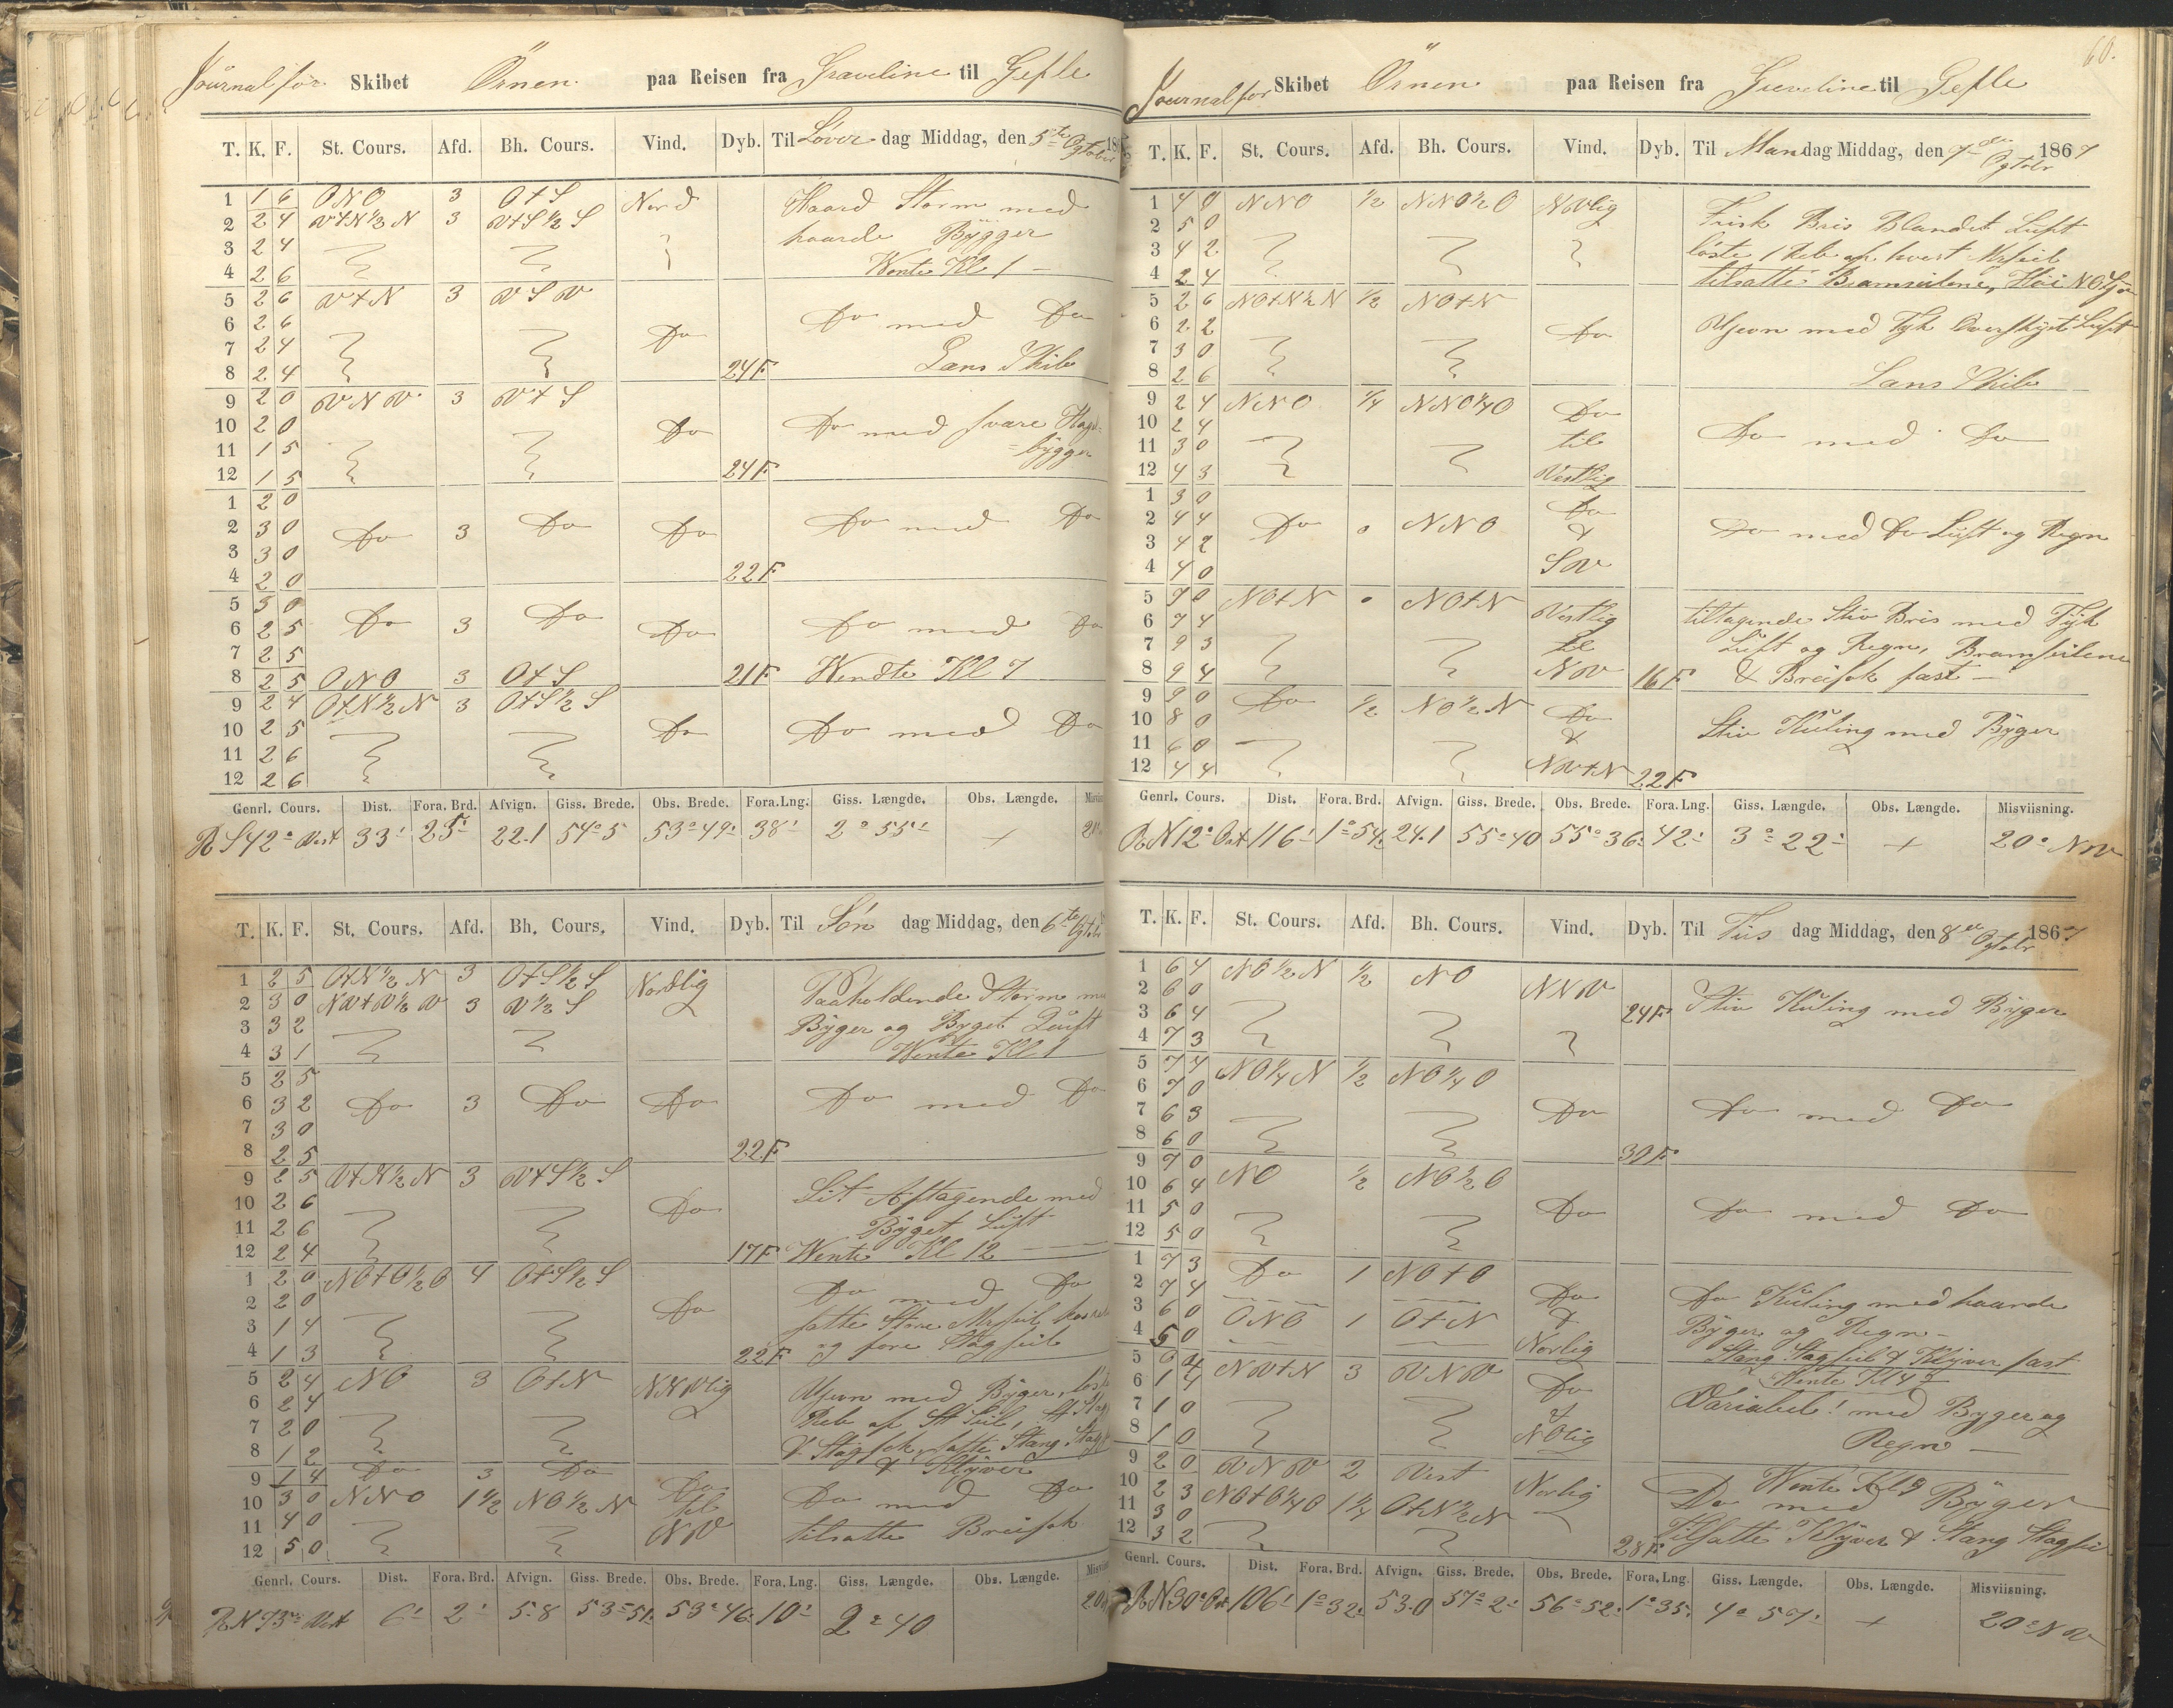 Journal for Skibet Örnen paa Reisen fra Graveline til Gefle
T. K. F. St. Cours. Afd. Bh. Cours. Vind. Dyb. Til Löver dag Middag, den 5te Ogtober 18
1 1 6 ONO 3 O+S Nord Haard Storm med
2 2 4 V+N½N 3 V+S½S haarde Bÿgger
3 2 4
4 2 6 Wente Kl 1 —
5 2 6 V+N 3 VSV
6 2 6 Do Do med Do
7 2 4
8 2 4 24F Lans Skib
9 2 0 VNV 3 V+S
10 2 0 Do Do med svare Hagel-
11 1 5 =bÿgger
12 1 5 24F
1 2 0
2 3 0 Do 3 Do Do Do med Do
3 3 0
4 2 0 22F
5 3 0
6 2 5 Do 3 Do Do Do med Do
7 2 5
8 2 5 ONO 3 O+S 21F Wendte Kl 7
9 2 4 O+N½N 3 O+S½S
10 2 5 Do Do med Do
11 2 6
12 2 6
Genrl. Cours. Dist. Fora. Brd. Afvign. Giss. Brede. Obs. Brede. Fora. Lng. Giss. Længde. Obs. Længde.
R S 42° Vest 33' 25' 22.1 54° 5 53° 49' 38' 2° 55' + 20°
T. K. F. St. Cours. Afd. Bh. Cours. Vind. Dyb. Til Sön dag Middag, den 6te Ogtober
1 2 5 O+N½N 3 O+S½S Nordlig Paaholdende Storm
2 3 0 NV+V½V 3 V½S
3 3 2 Bÿger og Byget Luft
4 3 1 Wente Kl 1
5 2 5
6 3 2 Do 3 Do Do Do med Do
7 3 0
8 2 5 22F
9 2 5 V+N½N 3 V+S½S
10 2 6 Do Lit Aftagende med
11 2 6 Bÿget Luft
12 2 4 17F Wente Kl 12
1 2 0 NO+O½O 4 O+S½S Do med Do
2 2 0 Do
3 1 4 satte Store Mrseil
4 1 3 22F og fore Stagseil
5 2 4 NO 3 O+N NNVlig Ujevn med Bÿger,
6 2 4 Reb af St Seil,
7 2 0
8 1 2 satte Stang Stag
9 1 4 Do 3 Do Do & Klÿver
10 3 0 NNO 1½ NO½N til Do med Do
11 4 0 NV tilsatte Breifok
12 5 0
Genrl. Cours. Dist. Fora. Brd. Afvign. Giss. Brede. Obs. Brede. Fora. Lng. Giss. Længde. Obs. Længde.
R N 73° Vest 6' 2' 5.8 53° 51' 53° 46' 10' 2° 40
60.
Journal for Skibet Örnen paa Reisen fra Greveline til Gefle
T. K. F. St. Cours. Afd. Bh. Cours. Vind. Dyb. Til Man dag Middag, den 7de Ogtobr 1867
1 4 0 NNO ½ NNO½O NVlig Frisk Bris Blandet Luft
2 5 0
3 4 2 löste 1 Reb af hvert Mrseil
4 2 4 tilsatte Bramseilene, Höi NO Sjö
5 2 6 NO+N½N ½ NO+N
6 2 2 Do Ujevn med Tyk Overskÿet Luft
7 3 0
8 2 6 Lans Skib
9 2 4 NNO ¼ NNO¼O Do
10 2 4 Do med Do
11 3 0 til
12 4 3 Vestlig
1 3 0 Do
2 4 4 Do 0 NNO & Do med Do Luft og Regn
3 4 2
4 4 0 SV
5 7 0 NO+N 0 NO+N Vestlig tiltagende Stiv Bris med Tÿk
6 7 4
7 9 3 til Luft og Regn, Bramseilene
8 9 4 NV 16F & Breifok fast —
9 9 0 Do ½ NO½N Do
10 8 0 & Stiv Kuling med Bÿger
11 6 0
12 4 4 NV+N 22F
Genrl. Cours. Dist. Fora. Brd. Afvign. Giss. Brede. Obs. Brede. Fora. Lng. Giss. Længde. Obs. Længde. Misviisning.
R N 12° Ost 116' 1° 54' 24.1 55° 40 55° 36' 42' 3° 22' + 20° NV
T. K. F. St. Cours. Afd. Bh. Cours. Vind. Dyb. Til Tiis dag Middag, den 8de Ogtobr 1867
1 6 4 NO½N ½ NO NNV
2 6 0
3 6 4 24F Stiv Kuling med Bÿger
4 7 3
5 7 4 NO¼N ½ NO¼O
6 7 0
7 6 3 Do Do med Do
8 6 0 30F
9 7 0 NO ½ NO½O
10 6 4
11 5 0 Do Do med Do
12 5 0
1 7 3 Do 1 NO+O
2 7 4 Do Do Kuling med haarde
3 6 0 ONO 1 O+N & Bÿger og Regn —
4 5 0 Norlig Stang Stagseil & Klÿver fast
5 0 4 NV+N 3 VNV Do Wente Kl 4½
6 1 4
7 1 0 & Variabel! med Bÿger og
8 1 0 NOlig Regn —
9 2 0 VNV 2 Vest Norlig Wente Kl 9
10 2 3 NO+O¼O 1¼ O+N½N Do med Bÿger
11 3 0
12 3 2 28F Tilsatte Klÿver & Stang Stagseil
Genrl. Cours. Dist. Fora. Brd. Afvign. Giss. Brede. Obs. Brede. Fora. Lng. Giss. Længde. Obs. Længde. Misviisning.
R N 30° Ost 106' 1° 32' 53.0 57° 2' 56° 52' 1° 35' 4° 57' + 20° NV